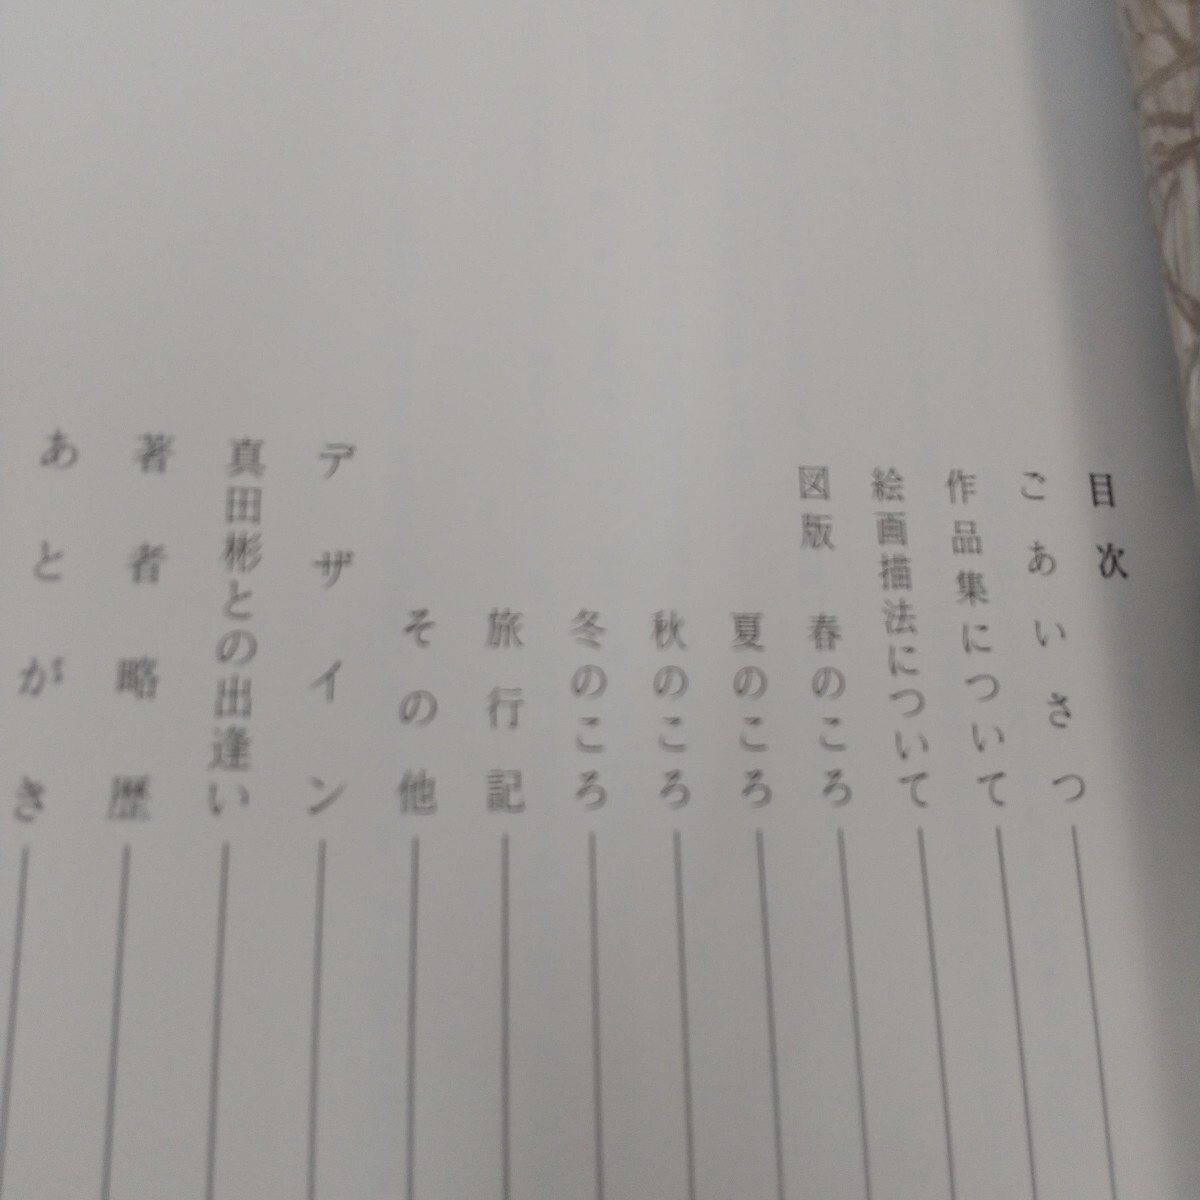 目次
ごあいさつ
作品集について
絵画描法について
図版 春のころ
夏のころ
秋のころ
冬のころ
旅行記
その他
デザイン
真田彬との出逢い
著者略歴
あとがき